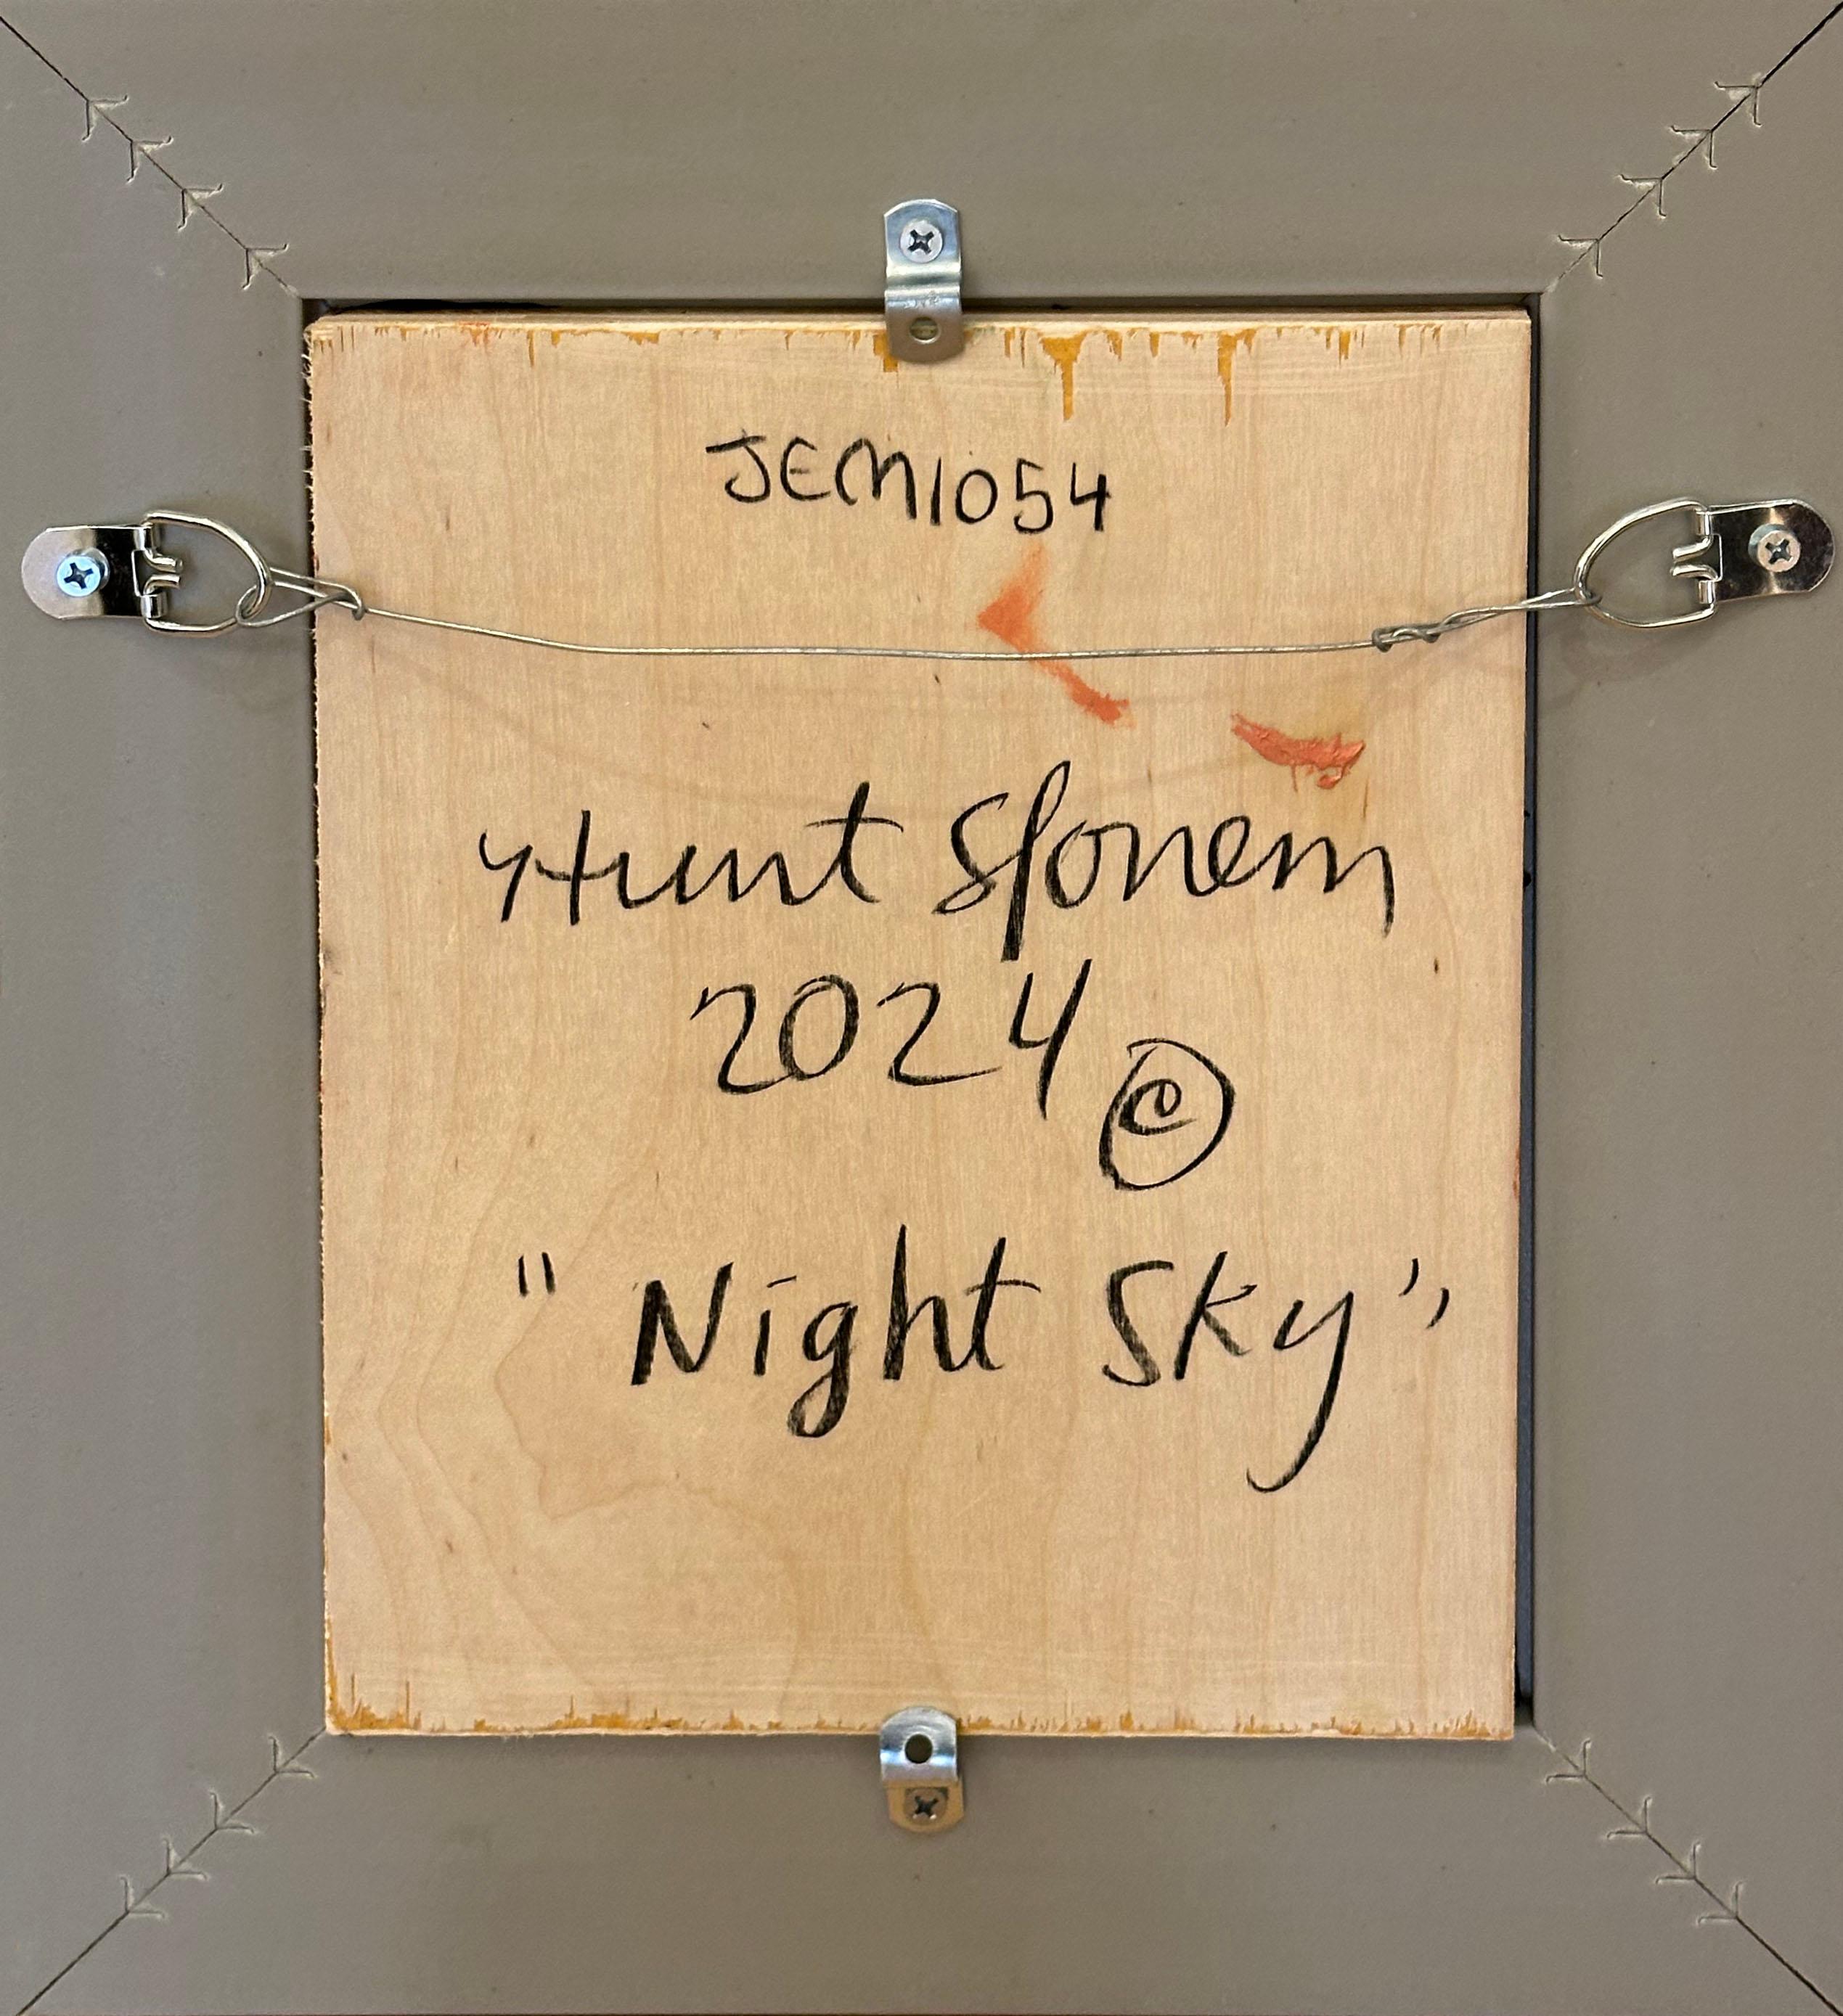 JEM1054
Hunt Slonem
2024 ©
"Night Sky"